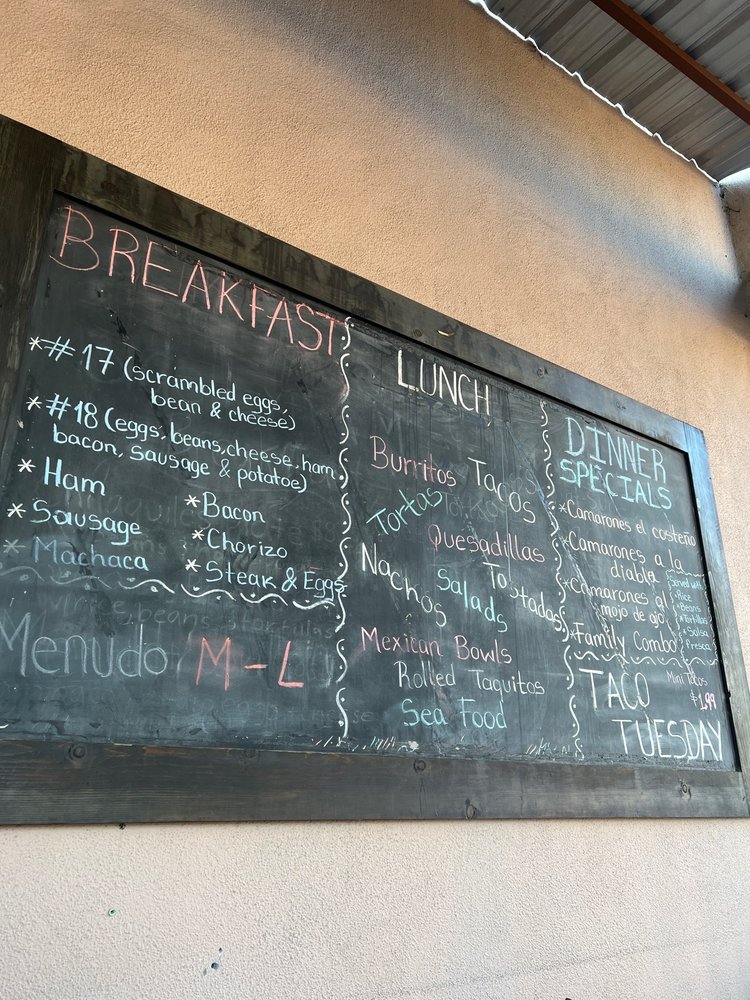 BREAKFAST
*#17 (scrambled eggs,
bean & cheese)
*#18 (eggs, beans, cheese, ham
bacon, sausage & potatoe)
* Ham
* Sausage
* Machaca
*Bacon
*Chorizo
*Steak & Eggs
Menudo M-L
LUNCH
Burritos Tacos
Tortas
Quesadillas
Nachos Salads Tostadas
Mexican Bowls
Rolled Taquitos
Sea Food
DINNER
SPECIALS
*Camarones el costeño
*Camarones a la
diabla
*Camarones a
mojo de ajo
*Family Combo
Served with
*Rice
*Beans
*Tortillas
*Salsa
fresca
TACO
TUESDAY
Mini Tacos
$1.99